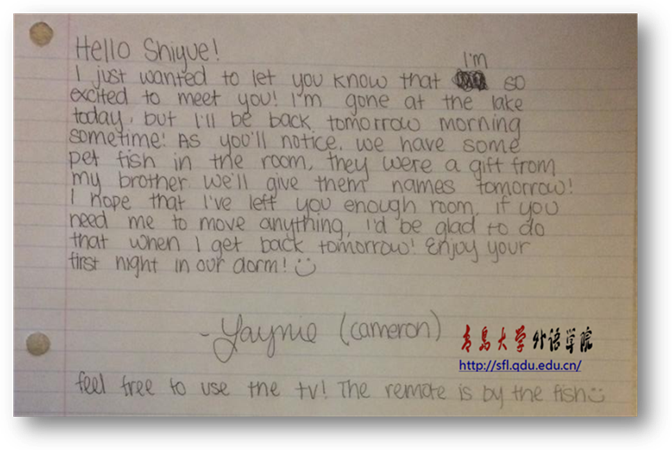 Hello Shiyue!
I'm
I just wanted to let you know that so
excited to meet you! I'm gone at the lake
today, but I'll be back tomorrow morning
sometime! As you'll notice, we have some
pet fish in the room, they were a gift from
my brother we'll give them names tomorrow!
I hope that I've left you enough room, if you
need me to move anything, I'd be glad to do
that when I get back tomorrow! Enjoy your
first night in our dorm!
- Jaynie (cameron)
青岛大学外语学院
http://sfl.qdu.edu.cn/
feel free to use the tv! The remote is by the fish